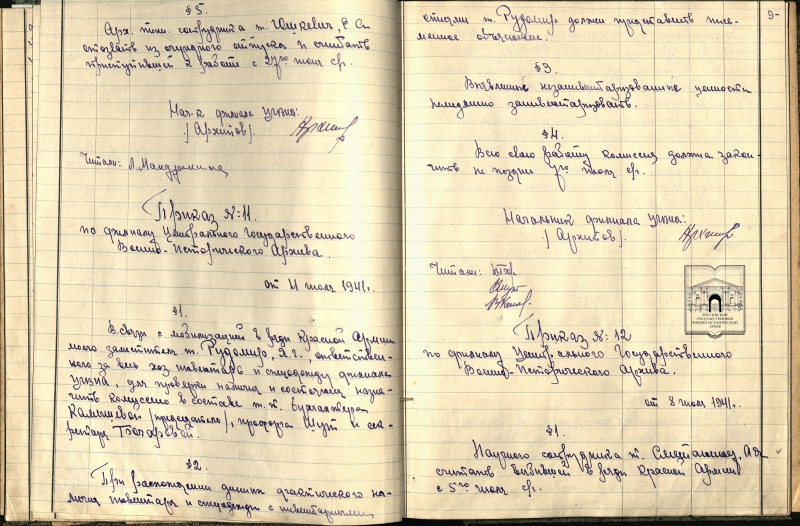 §5.
Арх. тех. сотрудника т. Юшкевич, Е. А.
отозвать из очередного отпуска и считать
приступившей к работе с 27го июля с/г.
Нач-к филиала ЦГВИА:
/Архипов/.
Читали:
Приказ №: 11.
по филиалу Центрального Государственного
Военно-Исторического Архива.
от 4 июля 1941г.
§1.
В связи с мобилизацией в ряды Красной Армии
моего заместителя т. Рудомир, Я.Г., ответствен-
ного за весь хоз. инвентарь и спецодежду филиала
ЦГВИА, для проверки наличия и состояния назна-
чить комиссию в составе т.т. бухгалтера
Камышевой /председатель/, профорга Шут и сек-
ретаря Бочаровой.
§2.
При расхождении данных фактического на-
личия инвентаря и спецодежды с инвентарными
9-
описями т. Рудомир должен представить пись-
менное объяснение.
§3.
Выявленные незаинвентаризованные ценности
немедленно заинвентаризовать.
§4.
Всю свою работу комиссия должна закон-
чить не позднее 7го июля с/г.
Начальник филиала ЦГВИА:
/Архипов/.
Читали:
РОССИЙСКИЙ
ГОСУДАРСТВЕННЫЙ
ВОЕННО-ИСТОРИЧЕСКИЙ
АРХИВ
Приказ №: 12
по филиалу Центрального Государственного
Военно-Исторического Архива.
от 8 июля 1941г.
§1.
Научного сотрудника т.
считать выбывшей в ряды Красной Армии
с 5го июля с/г.